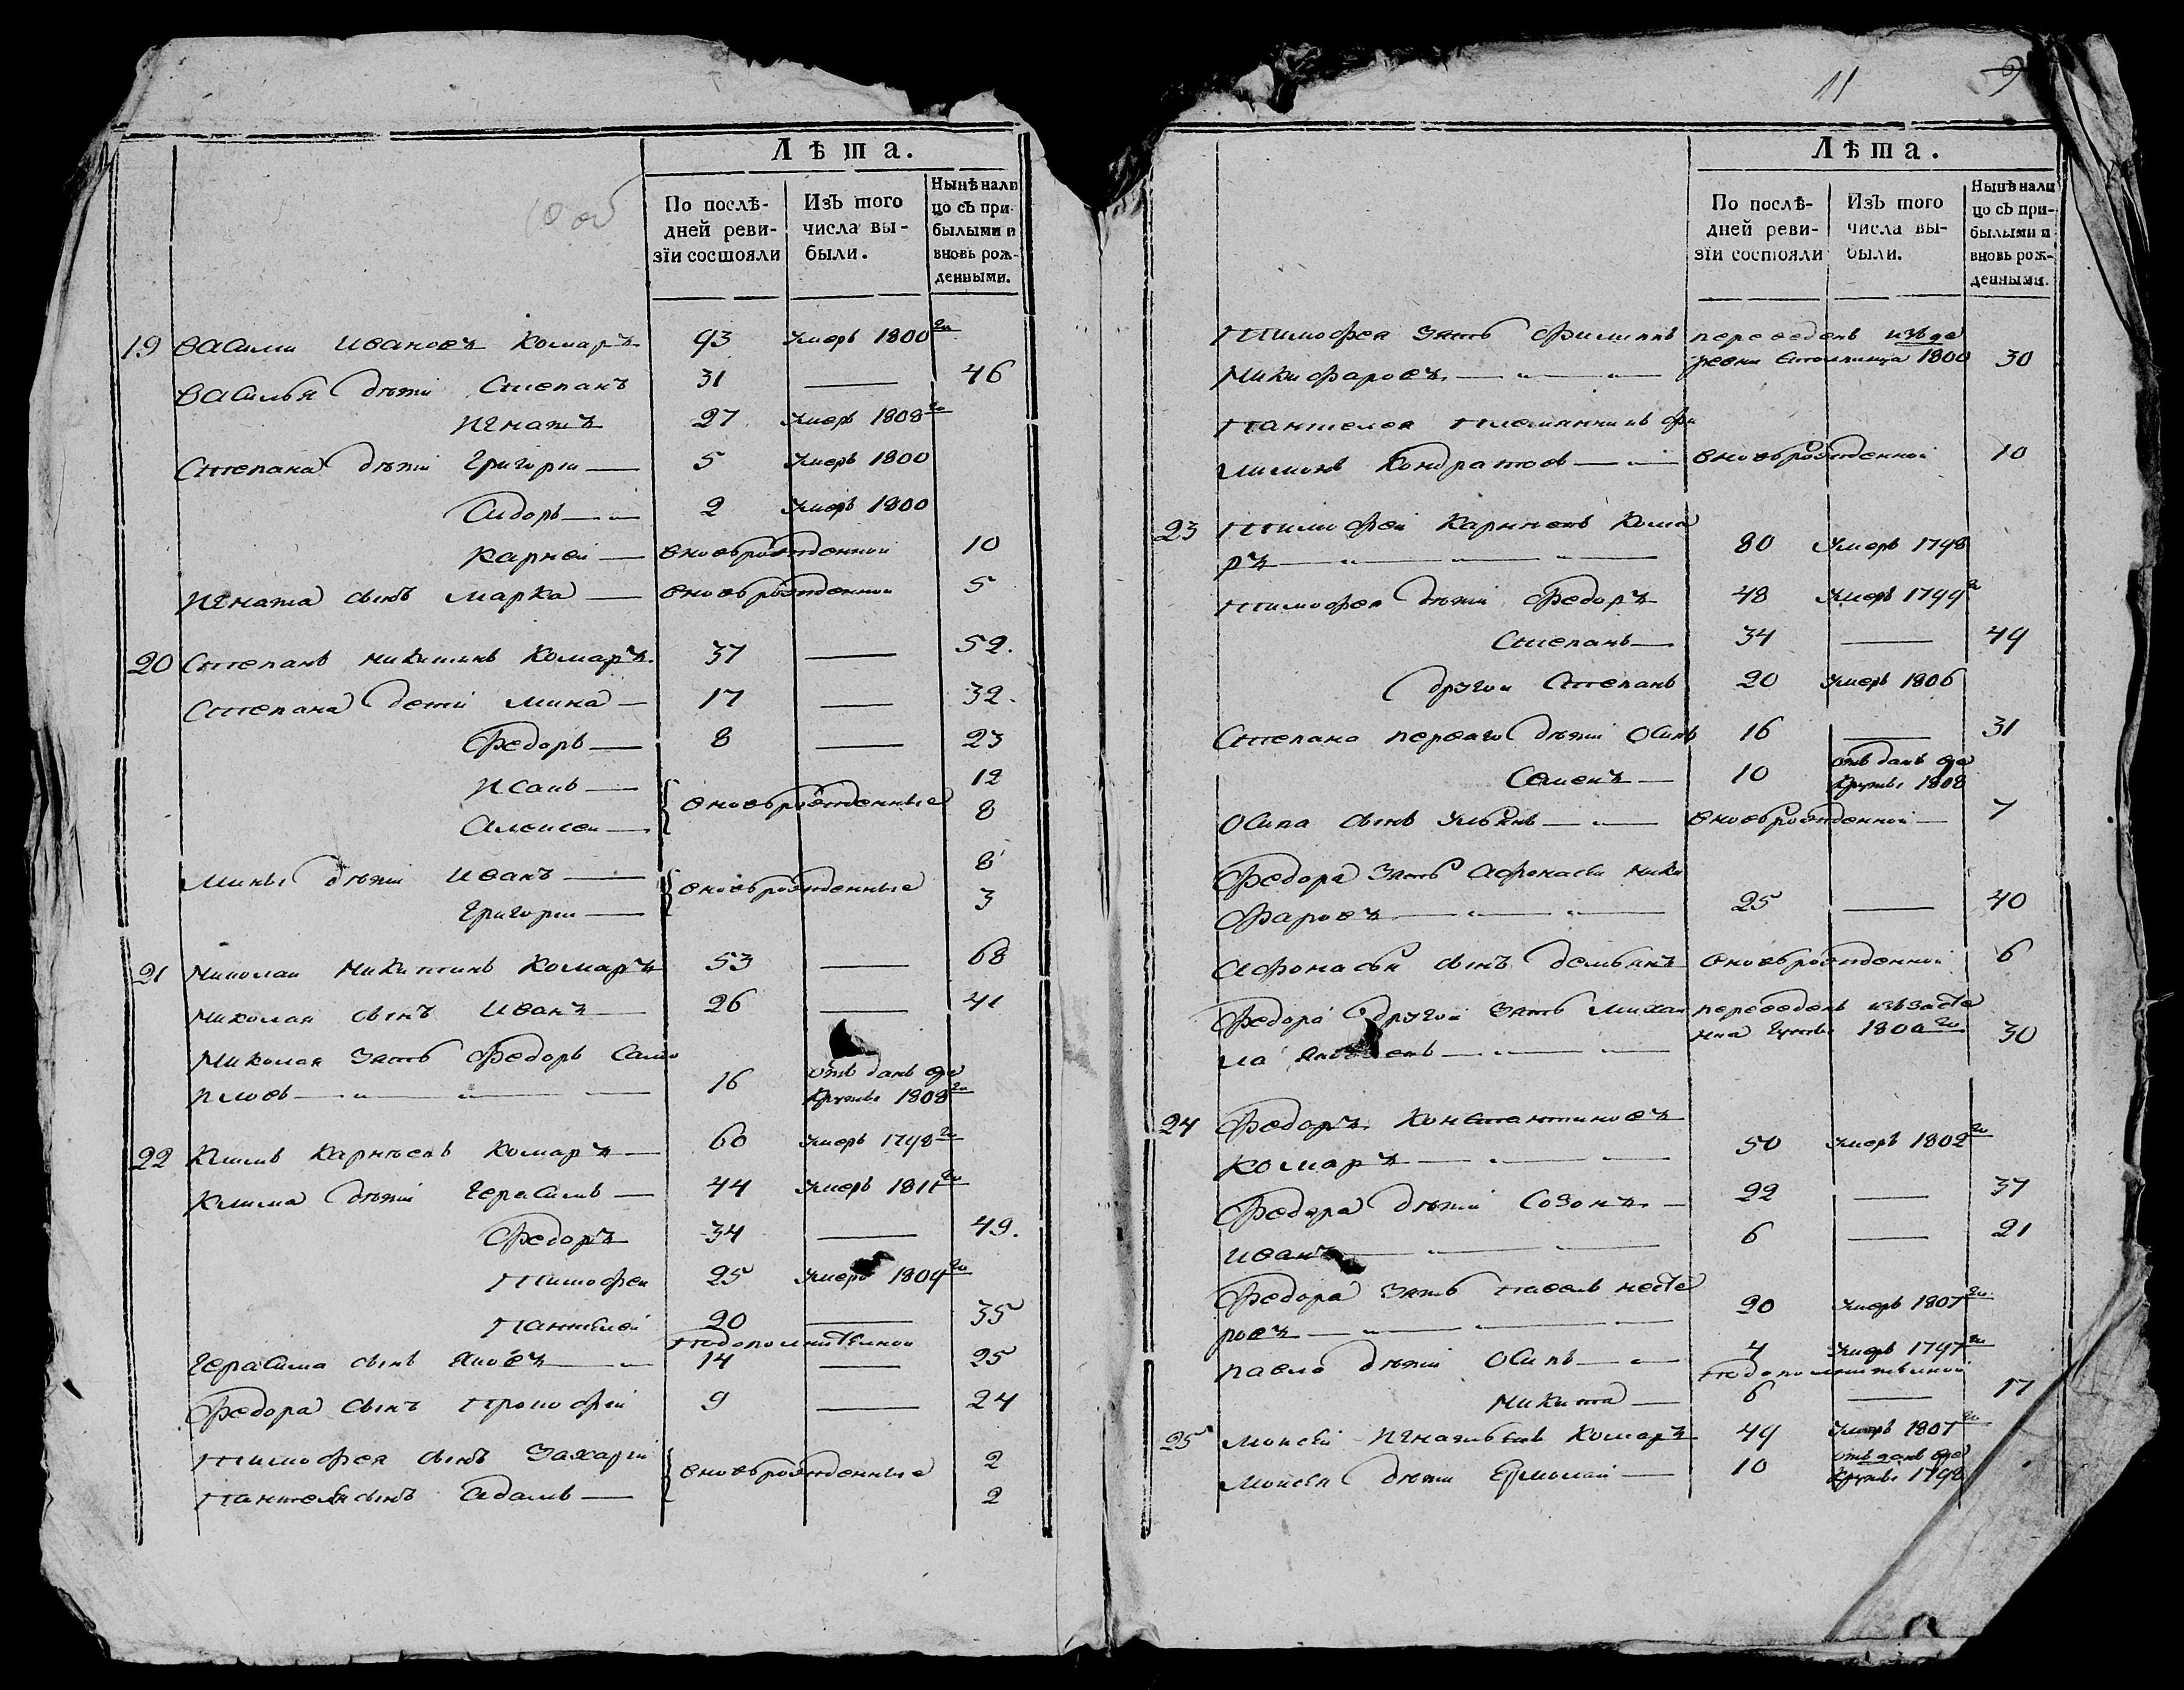 10 об
Лѣта.
По послѣ-
дней реви-
зїи состояли
Изъ того
числа вы-
были.
Нынѣ нали
цо съ при-
былыми и
вновь рож-
денными.
19 Василий Ивановъ Комаръ 93 умеръ 1800го
Василья дѣти Степанъ 31 — 46
Игнатъ 27 умеръ 1808го
Степана дѣти Григорий — 5 умеръ 1800
Сидоръ — 2 умеръ 1800
Карней — вновьрожденной 10
Игната сынъ Марка — вновьрожденной 5
20 Степанъ Микитинъ Комаръ. 37 — 52.
Степана дети Мина — 17 — 32.
Федоръ — 8 — 23
Исакъ — 12
вновьрожденные
Алексей — 8
Мины дѣти Иванъ — 8
вновьрожденные
Григорий — 3
21 Миколай Микитинъ Комаръ 53 — 68
Миколая сынъ Иванъ — 26 — 41
Миколая зять Федоръ Само
йловъ — 16 отъ данъ вре
круты 1808го
22 Климъ Карнѣевъ Комаръ — 60 умеръ 1798го
Клима дѣти Герасимъ — 44 умеръ 1811го
Федоръ 34 — 49.
Тимофей 25 умеръ 1804го
Пантелей 20 — 35
Подополнительной
Герасима сынъ Яковъ — 14 — 25
Федора сынъ Прокофий 9 — 24
Тимофея сынъ Захарий 2
вновьрожденные
Пантелея сынъ Адамъ — 2
11 9
Лѣта.
По послѣ-
дней реви-
зїи состояли
Изъ того
числа вы-
были.
Нынѣ нали
цо съ при-
былыми и
вновь рож-
денными.
Тимофея зять Филипъ переведенъ изъ де
Микифаровъ — ревни 1800 30
Пантелея племянникъ Фи
лимонъ Кондратовъ — вновьрожденной 10
23 Тимофей Карнѣевъ Кома
ръ — 80 умеръ 1798
Тимофея дѣти Федоръ 48 умеръ 1799го
Степанъ — 34 — 49
другой Степанъ 20 умеръ 1806
Степана перваго дѣти Осипъ 16 — 31
Семенъ — 10 отъ данъ вре
круты 1808
Осипа сынъ Ульянъ — вновьрожденной — 7
Федора зять Афонасей Мики
фаровъ — 25 — 40
Афонасья сынъ Демьянъ вновьрожденной 6
Федора другой зять Михай переведенъ изъ
ла Яковлевъ — 180 го 30
24 Федоръ Константиновъ
Комаръ — 50 умеръ 1802го
Федора дѣти Созонъ — 22 — 37
Иванъ — 6 — 21
Федора зять Павелъ Несте
ровъ — 20 умеръ 1807го
Павла дѣти Осипъ — 4 умеръ 1797го
Подополнительной
Микита — 6 — 17
25 Моисей Игнатьевъ Комаръ 49 умеръ 1807го
Моисея дѣти Ермолай — 10 отъ данъ вре
круты 1798